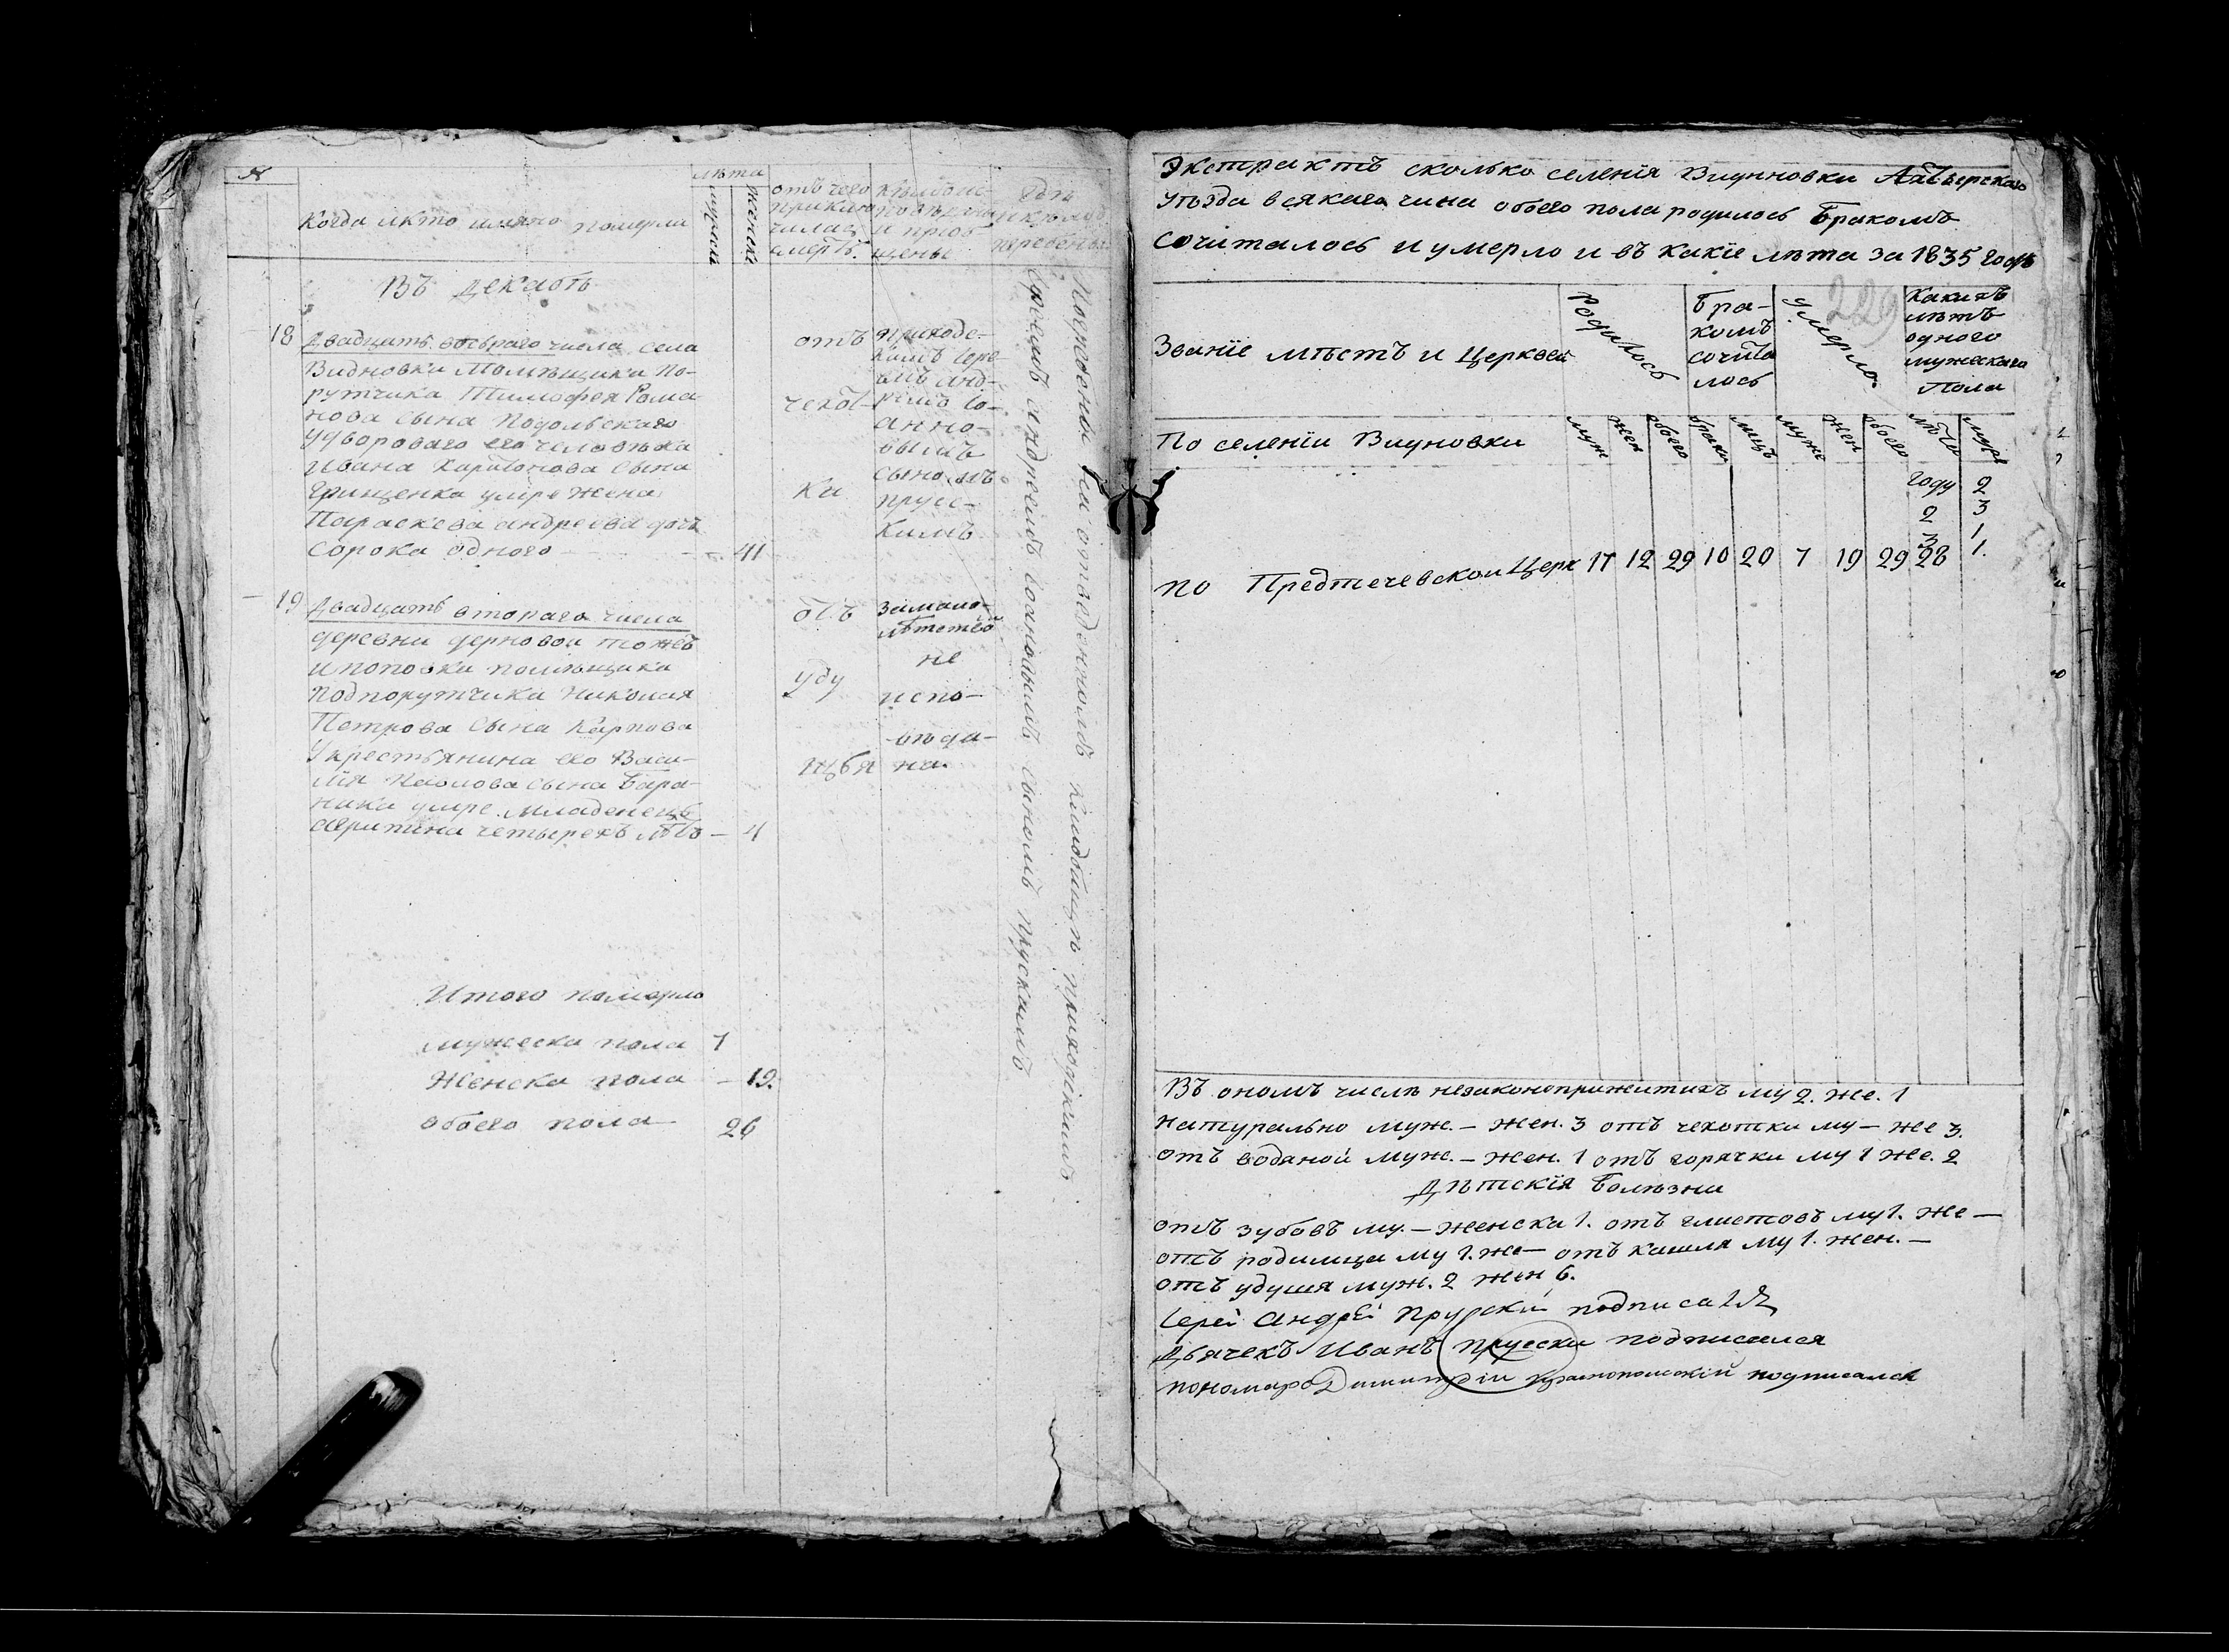 №
Когда и кто имяно померли
лѣта
мужски
женски
отъ чего
приклю
чилась
смерть.
Кѣмъ ис-
повѣданы
и приоб
щены
Гдѣ
и кѣмъ
погребены
Въ декабрѣ
18
Двадцать втораго числа села
Видновки Помѣщика По-
рутчика Тимофея Рома
нова сына Подольскаго
У двороваго его человѣка
Ивана Харитонова сына
Грищенка умре жена
Параскева Андреева дочь
сорока одного - - - - 41
отъ
чехот-
ки
приходс-
кимъ Іере-
емъ Анд-
реемъ Іо-
анно-
вымъ
сыномъ
прусс-
кимъ
19
Двадцать втораго числа
деревни Дерновой тожъ
и поповки помѣщика
Подпорутчика Николая
Петрова сына Карпова
У крестьянина его Васи-
лія Павлова сына Бара-
ника умре младенецъ
четырехъ лѣтъ — 4
отъ
уду
за мало-
лѣтствѣ
не
испо-
вѣда-
на.
Погребены на отведенномъ кладбищѣ приходскимъ
Іереемъ Андреемъ Іоанновымъ сыномъ прускимъ
Итого померло
мужеска пола 7
Женска пола — 19.
обоего пола 26
Экстрактъ сколько селенія Видновки Ахтырскаго
Уѣзда всякаго чина обоего пола родилось бракомъ
сочиталось и умерло и въ какіе лѣта за 1835 годъ
229
Званіе мѣстъ и Церквей
Родилось
бра-
комъ
сочита
лось
умерло.
Какихъ
лѣтъ
одного
мужескаго
Пола
По селеніи Видновки
муж
жен
обоего
браков
лицъ
муже
жен
обоего
лѣтъ
муже
году 2
2 3
3 1
по Предтечевской Церк 17 12 29 10 20 7 19 29 28 1.
Въ ономъ числѣ незаконоприжитихъ му 2. же. 1
Натурально муж. — жен. 3 отъ чехотки му — же 3.
отъ водяной муж. — жен. 1 отъ горячки му 1 же. 2
Дѣтскія болѣзни
отъ зубовъ му. — женска 1. отъ глистовъ му 1. же —
отъ родимца му 1. же — отъ кашля му 1. жен. —
отъ удушя муж. 2 жен 6.
Іерей Андрей Пруский подписалъ
Дьячекъ Иванъ прускій подписался
пономарь Димитрій Краснопольскій подписался